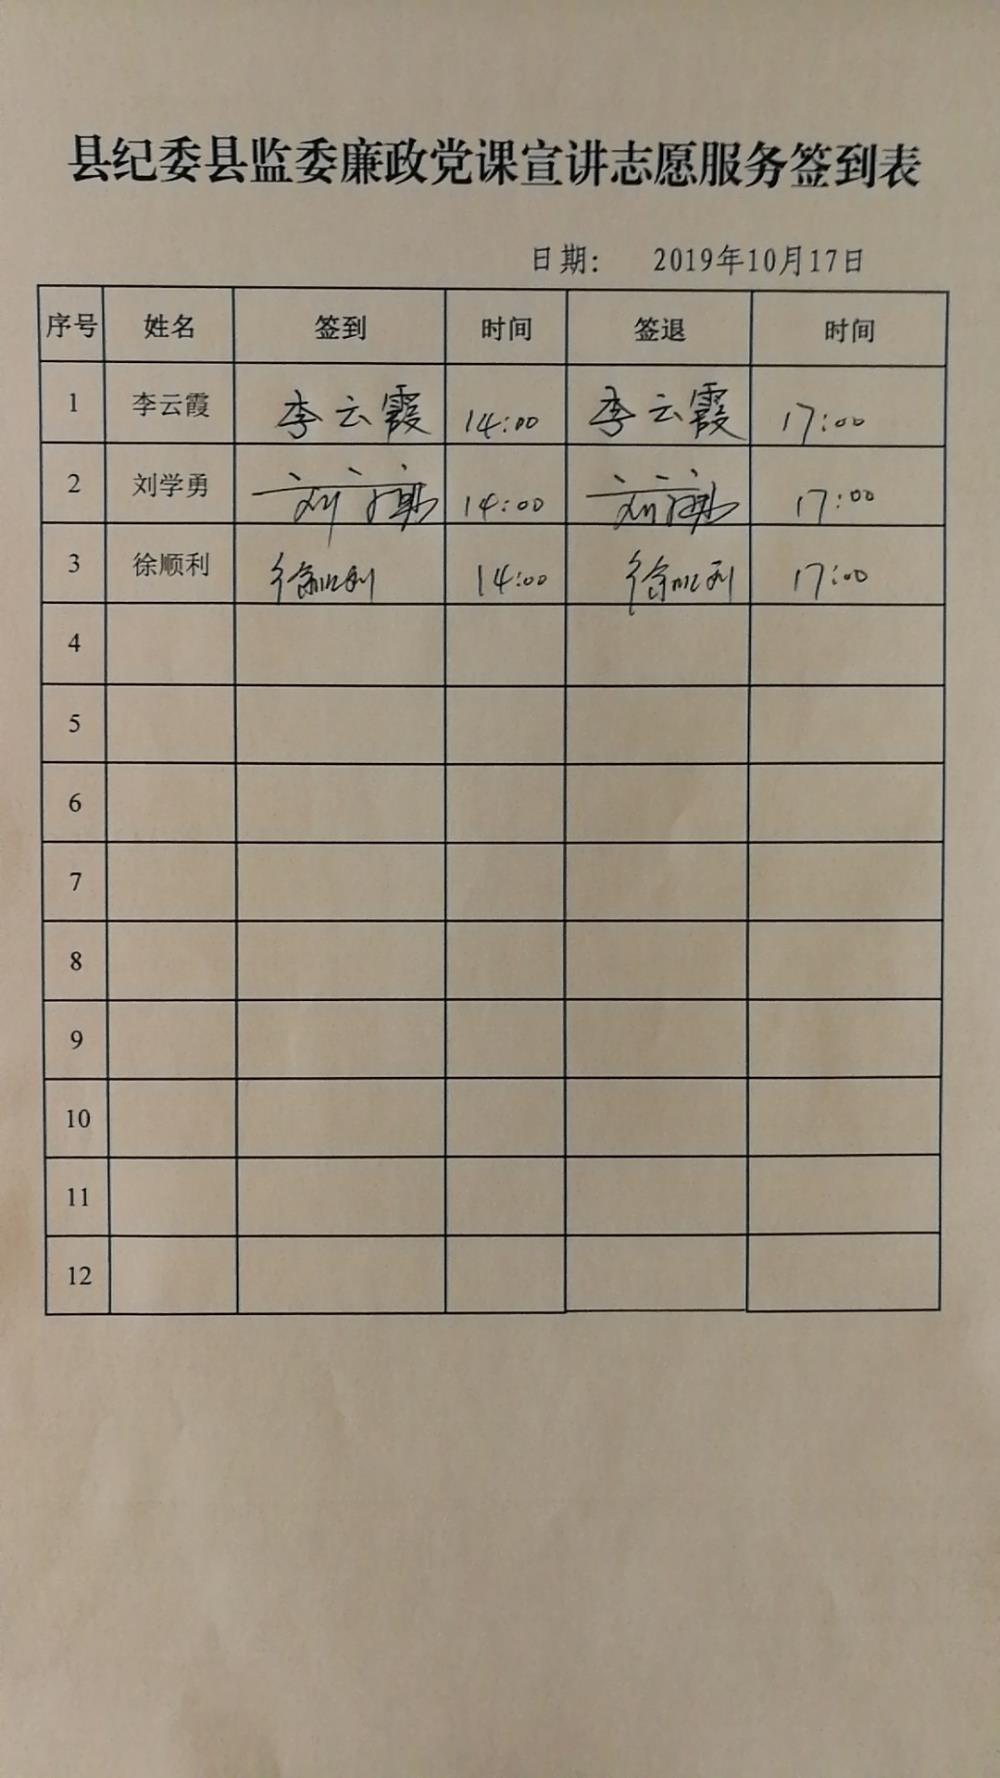 县纪委县监委廉政党课宣讲志愿服务签到表
日期: 2019年10月17日
序号 姓名 签到 时间 签退 时间
1 李云霞 李云霞 14:00 李云霞 17:00
2 刘学勇 刘学勇 14:00 刘学勇 17:00
3 徐顺利 徐顺利 14:00 徐顺利 17:00
4
5
6
7
8
9
10
11
12